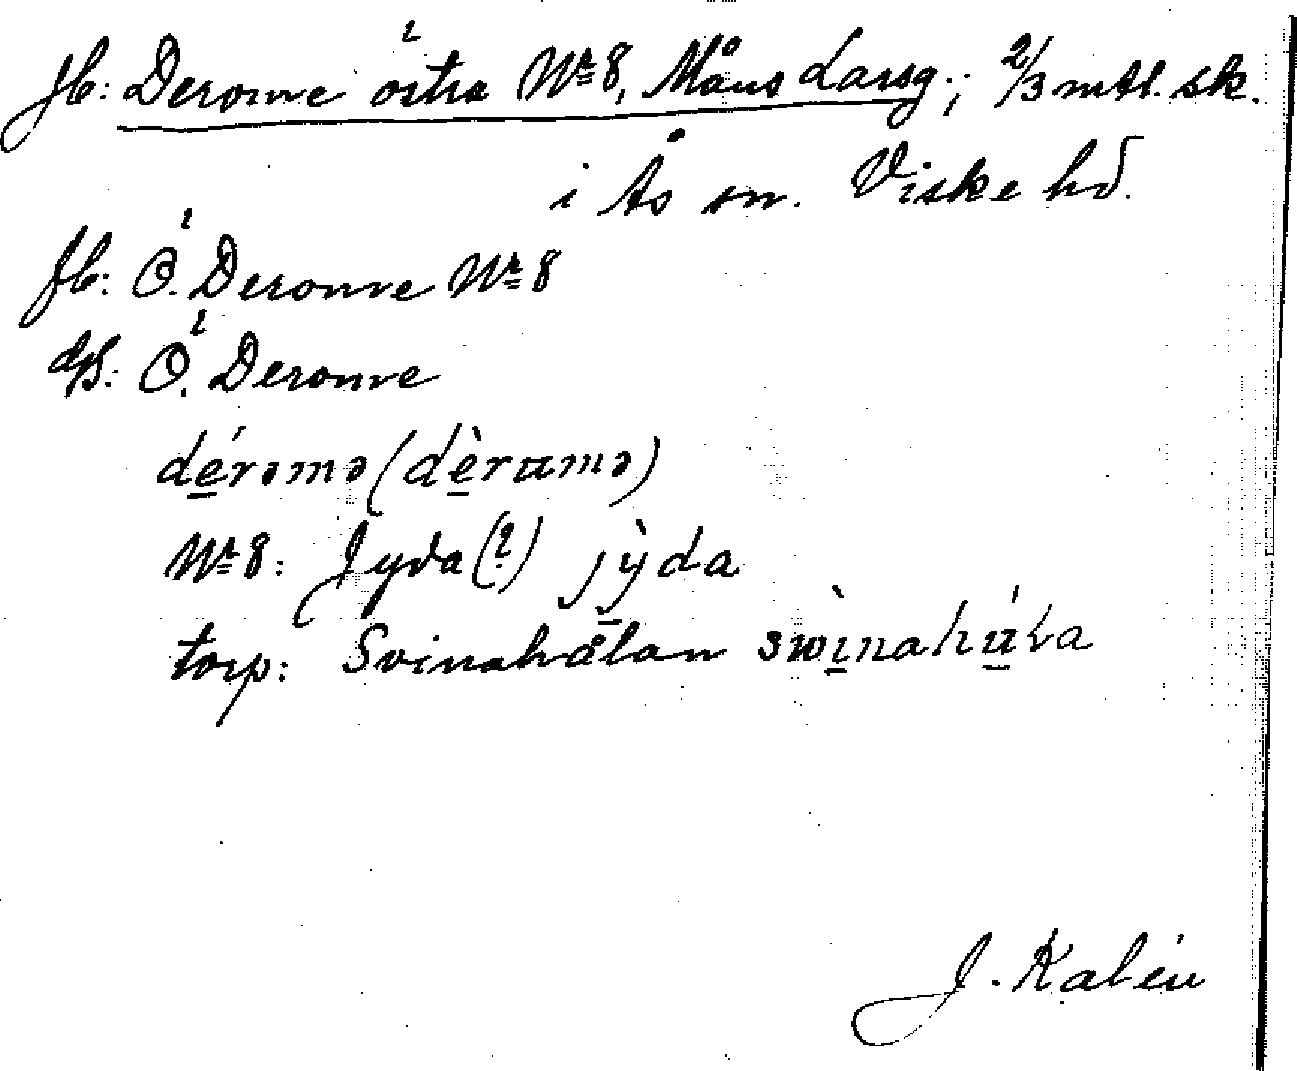 jb: Derome östra Nr 8, Måns Larsg.; 2/3 mtl. sk.
i Ås sn. Viske hd.
jb: Ö. Derome Nr 8
Ö. Derome
dérəmə (dèrumə)
Nr 8: Jyda (?) jỳda
torp: Svinahålan
J. Kalén